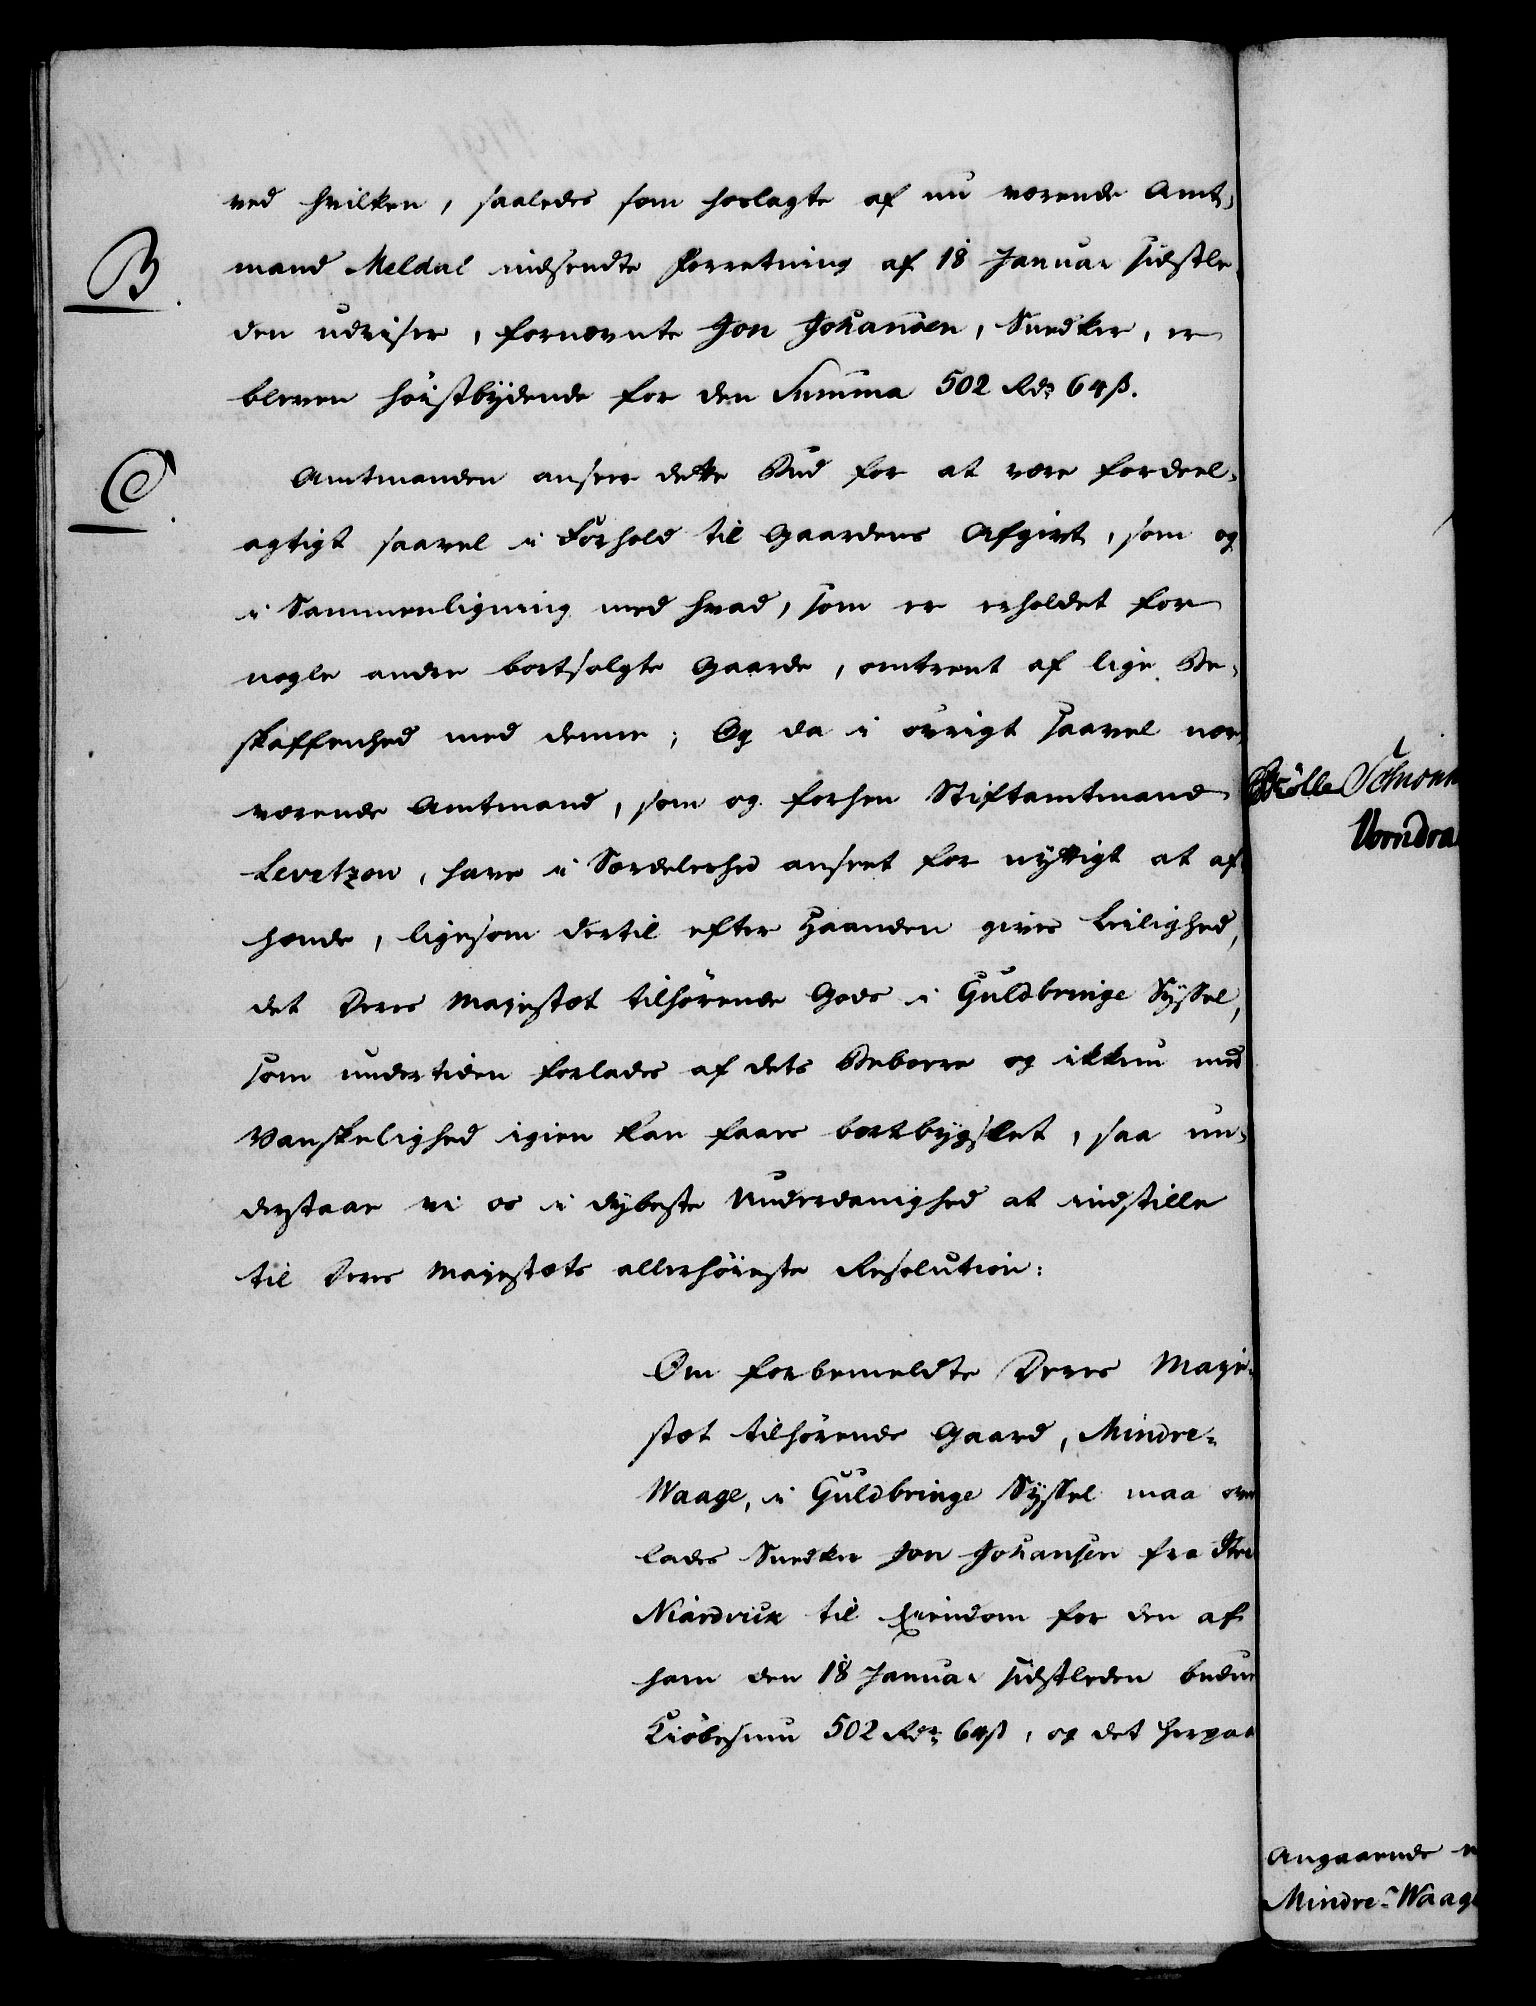 ved hvilken, saaledes som hoslagte af nu værende Amt-
B.
mand Meldal indsendte Forretning af 18 Januar sidstle-
den udviser, fornævnte Jon Johansen, Snedker, er
bleven höistbydende for den Summa 502 Rdr 64 ß.
C.
Amtmanden anseer dette Bud for at være fordeel-
agtigt saavel i Forhold til Gaardens Afgivt, som og
i Sammenligning med hvad, som er erholdet for
nogle andre bortsolgte Gaarde, omtrent af lige Be-
skaffenhed med denne; Og da i övrigt saavel nær-
værende Amtmand, som og forhen Stiftamtmand
Levetzon, have i Særdeleshed anseet for nyttigt at af-
hænde, ligesom dertil efter Haanden gives Leilighed,
det Deres Majestæt tilhörende Gods i Guldbringe Syssel,
som undertiden forlades af dets Beboere og ikkun med
Vanskelighed igien kan faaes bortbygslet, saa un-
derstaae vi os i dybeste Underdanighed at indstille
til Deres Majestæts allerhöieste Resolution:
Om forbemeldte Deres Maje-
stæt tilhörende Gaard, Mindre-
Waage, i Guldbringe Syssel maa over
lades Snedker Jon Johansen fra
Niardvik til Eiendom for den af
ham den 18 Januar sidstleden budne
Kiöbesum 502 Rdr 64 ß, og det herpaa
Angaaende
Mindre-Waage